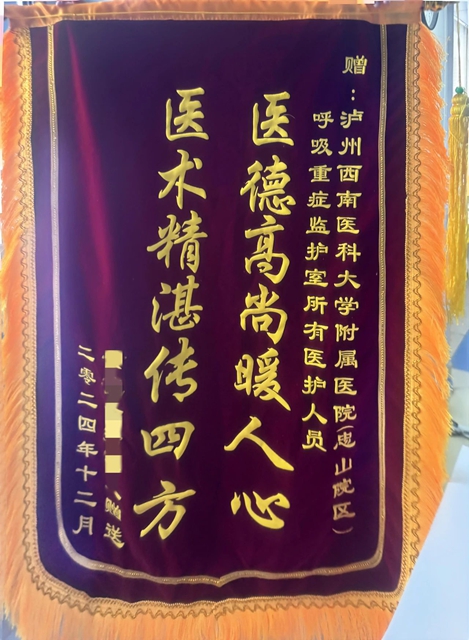 赠：泸州西南医科大学附属医院(忠山院区)
呼吸重症监护室所有医护人员
医德高尚暖人心
医术精湛传四方
、赠送
二零二四年十二月